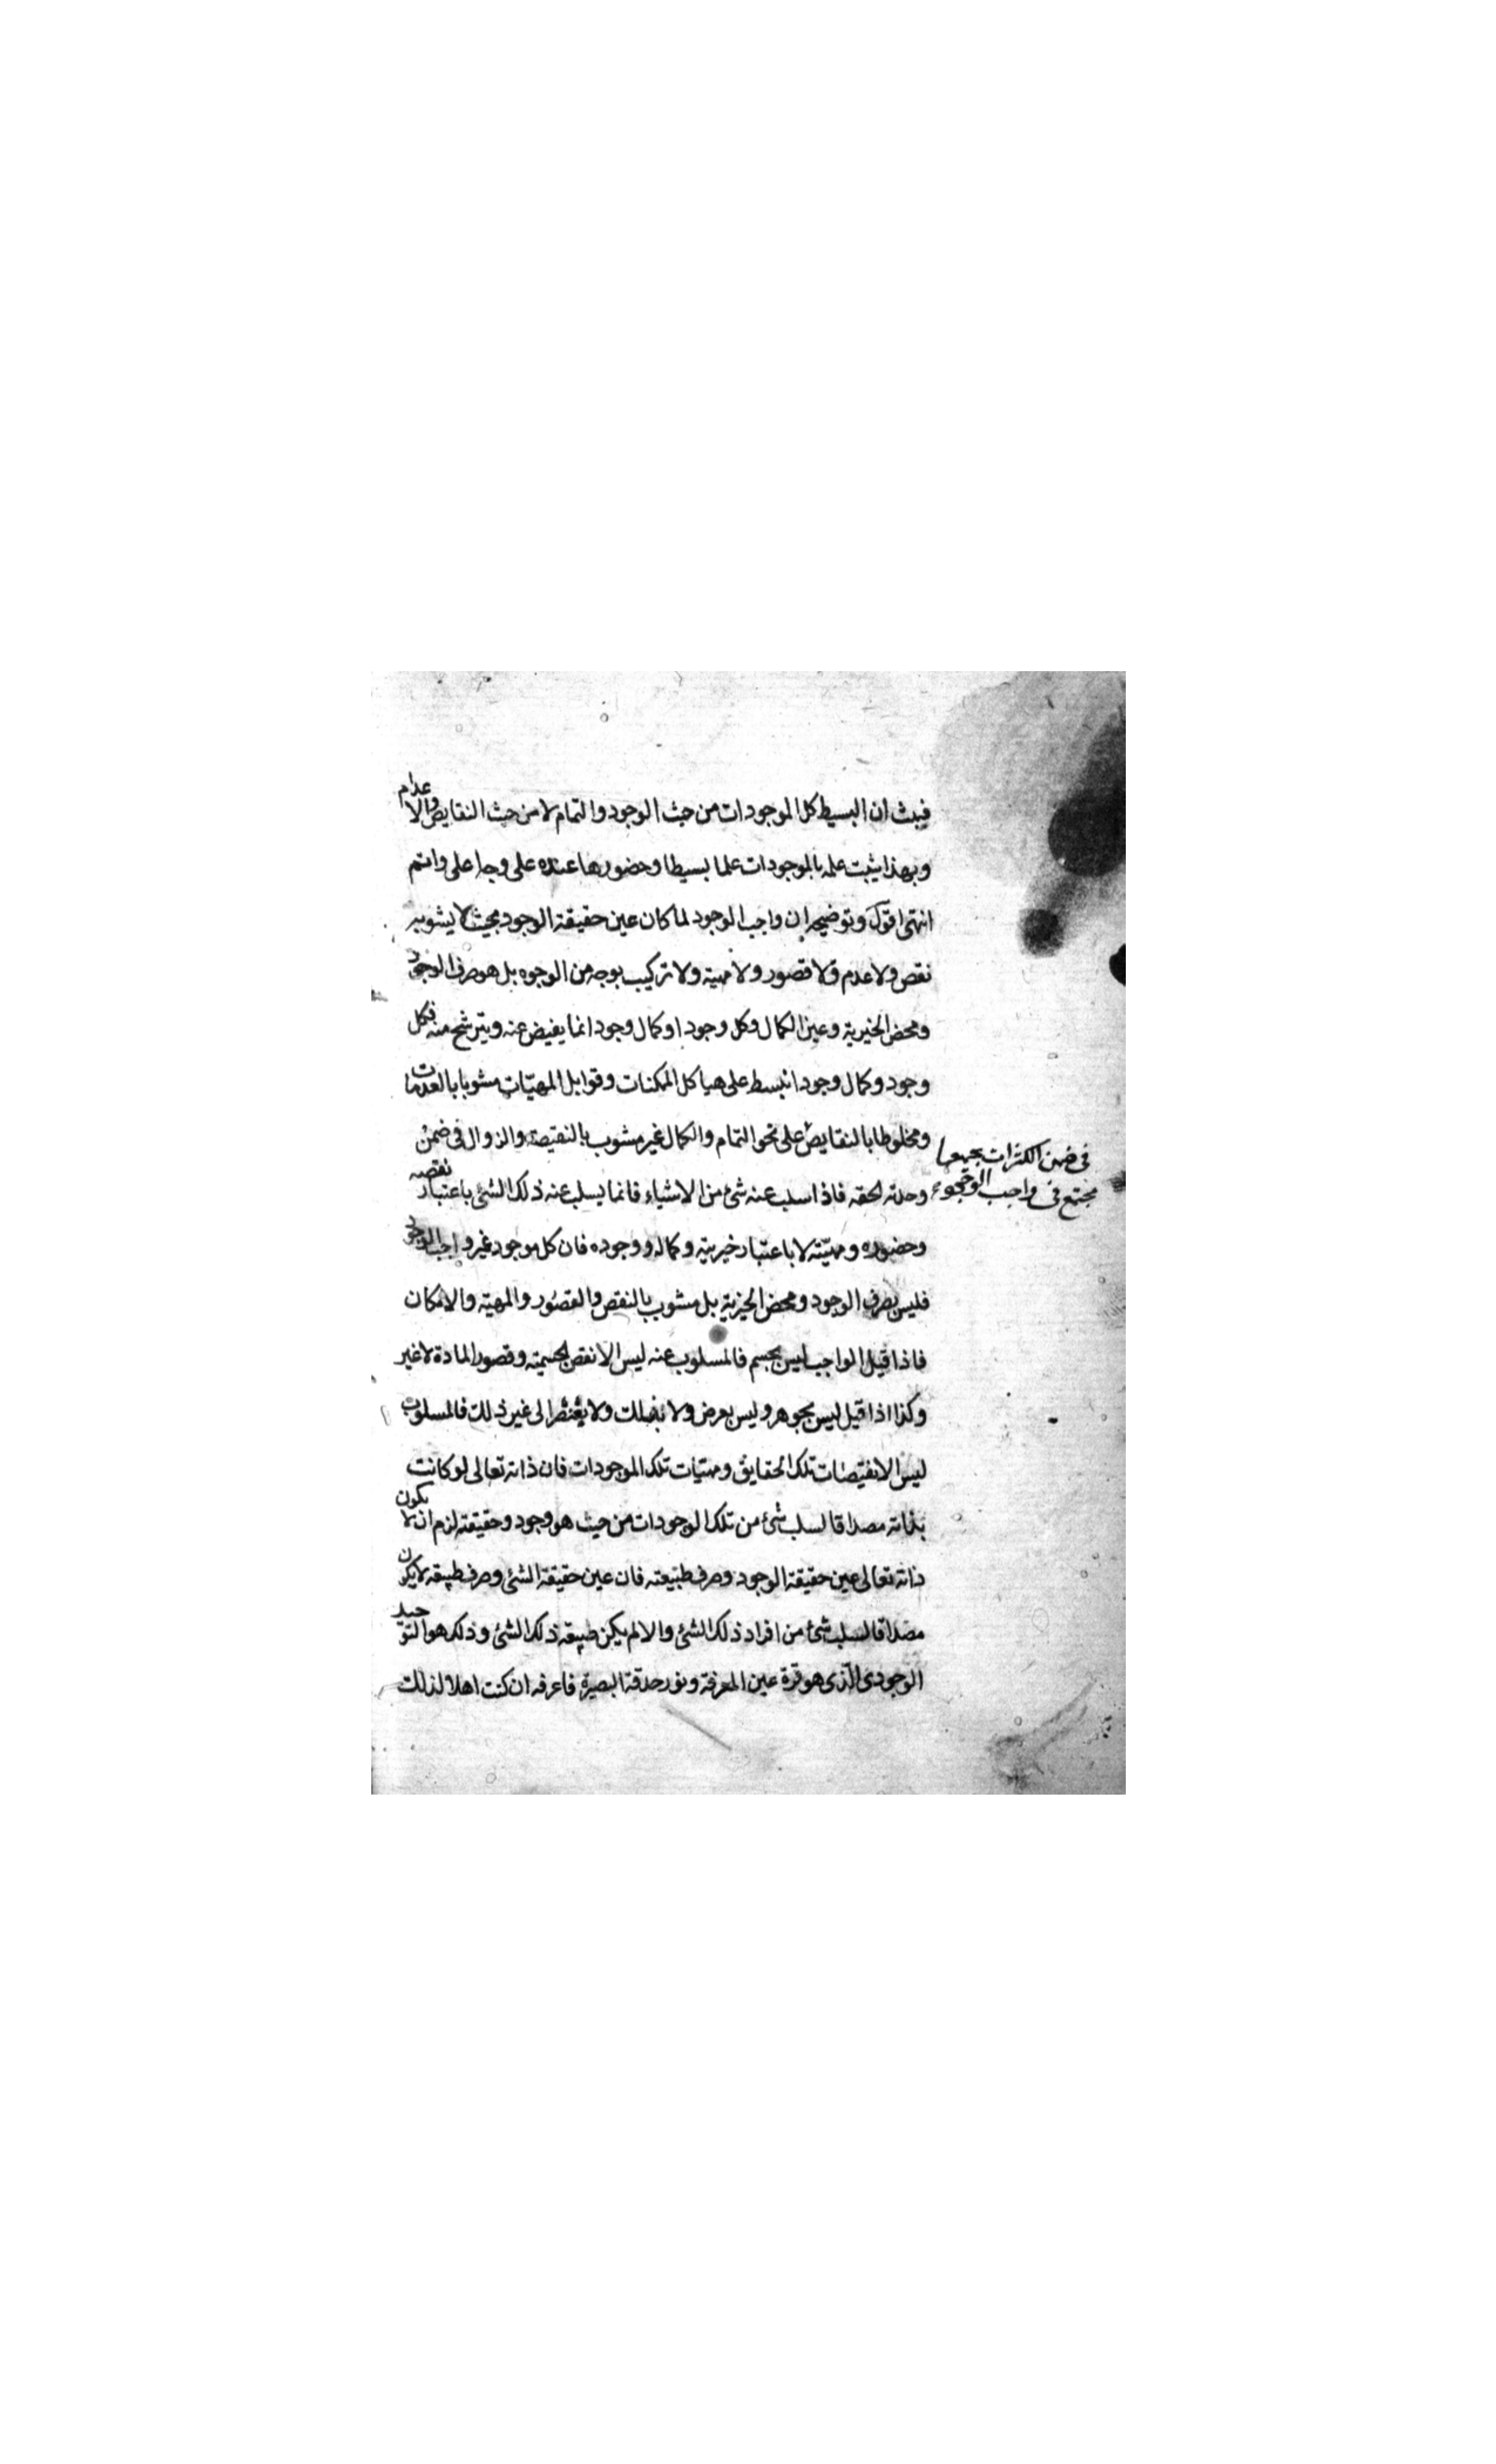 فيثبت ان البسيط كل الموجودات من حيث الوجود والتمام لا من حيث النقايص والاعدام
وبهذا يثبت علمه بالموجودات علما بسيطا وحضورها عنده على وجه اعلى واتم
انتهى اقول وتوضيحه ان واجب الوجود لما كان عين حقيقة الوجود بحيث لا يشوبه
نقص ولا عدم ولا قصور ولا مهية ولا تركيب بوجه من الوجوه بل هو صرف الوجود
ومحض الخيرية وعين الكمال وكل وجود او كمال وجود انما يفيض عنه ويترشح منه فكل
وجود وكمال وجود انبسط على هياكل الممكنات وقوابل المهيّات مشوبا بالعدمات
ومخلوطا بالنقايص على نحو التمام والكمال غير مشوب بالنقيصة والزوال فى ضمن
فى ضمن الكثرات بجمعها
مجتمع فى واجب الوجود
وحدته الحقه فاذا سلب عنه شئ من الاشياء فانما يسلب عنه ذلك الشئ باعتبار نقصه
وحضوره ومهيّته لا باعتبار خيريته وكماله ووجوده فان كل موجود غير واجب الوجود
فليس بصرف الوجود ومحض الخيرية بل مشوب بالنقص والقصور والمهية والامكان
فاذا قيل الواجب ليس بجسم فالمسلوب عنه ليس الا نقص الجسمية وقصور المادة لا غير
وكذا اذا قيل ليس بجوهر وليس بعرض ولا بفلك ولا بعنصر الى غير ذلك فالمسلوب
ليس الا نقيصات تلك الحقايق ومهيّات تلك الموجودات فان ذاته تعالى لو كانت
بذاته مصداقا لسلب شئ من تلك الوجودات من حيث هو وجود وحقيقته لزم ان لا يكون
ذاته تعالى عين حقيقة الوجود وصرف طبيعته فان عين حقيقة الشئ وصرف طبيعته لا يكون
مصداقا لسلب شئ من افراد ذلك الشئ والا لم يكن طبيعة ذلك الشئ وذلك هو التوحيد
الوجودى الّذى هو قرة عين المعرفة ونور حدقة البصيرة فاعرفه ان كنت اهلا لذلك